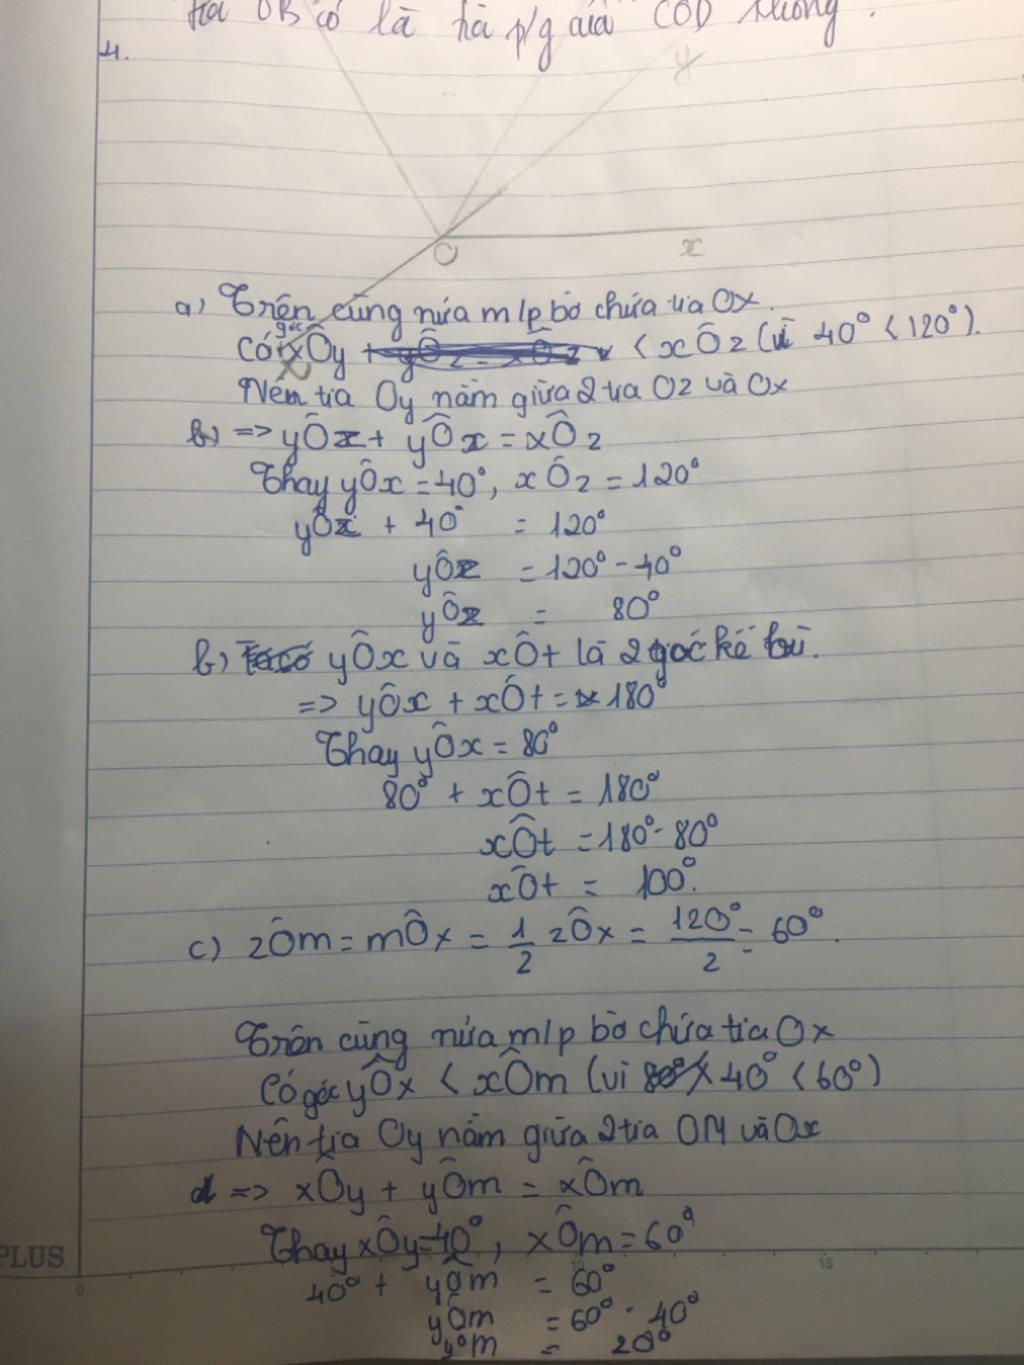 tia OB có là tia p/g của COD không.
4.
y
O
x
a) Trên cùng nửa m/p bờ chứa tia Ox.
Có góc xÔy < xÔz (vì 40° < 120°).
Nên tia Oy nằm giữa 2 tia Oz và Ox
b) => yÔz + yÔx = xÔz
Thay yÔx = 40°, xÔz = 120°
yÔz + 40° = 120°
yÔz = 120° - 40°
yÔz = 80°
b) yÔx và xÔt là 2 góc kề bù.
=> yÔx + xÔt = 180°
Thay yÔx = 80°
80° + xÔt = 180°
xÔt = 180° - 80°
xÔt = 100°.
c) zÔm = mÔx = 1/2 zÔx = 120°/2 = 60°.
Trên cùng nửa m/p bờ chứa tia Ox
Có góc yÔx < xÔm (vì 40° < 60°)
Nên tia Oy nằm giữa 2 tia OM và Ox
d => xÔy + yÔm = xÔm
Thay xÔy = 40°, xÔm = 60°
40° + yÔm = 60°
yÔm = 60° - 40°
yÔm = 20°
PLUS
0 10 15